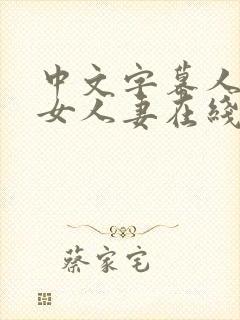 中文字幕人
女人妻在綫
蔡家宅